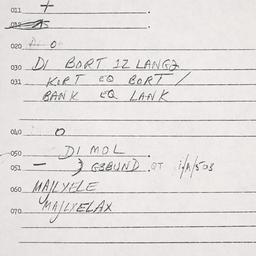 011 +
020 DI O
030 DI BORT 12 LANGZ
031 KORT EQ BORT /
BANK EQ LANK
040 O
050 DI MOL
051 — } GBBUND QT
060 MAJLYELE
070 MAJLYELAX